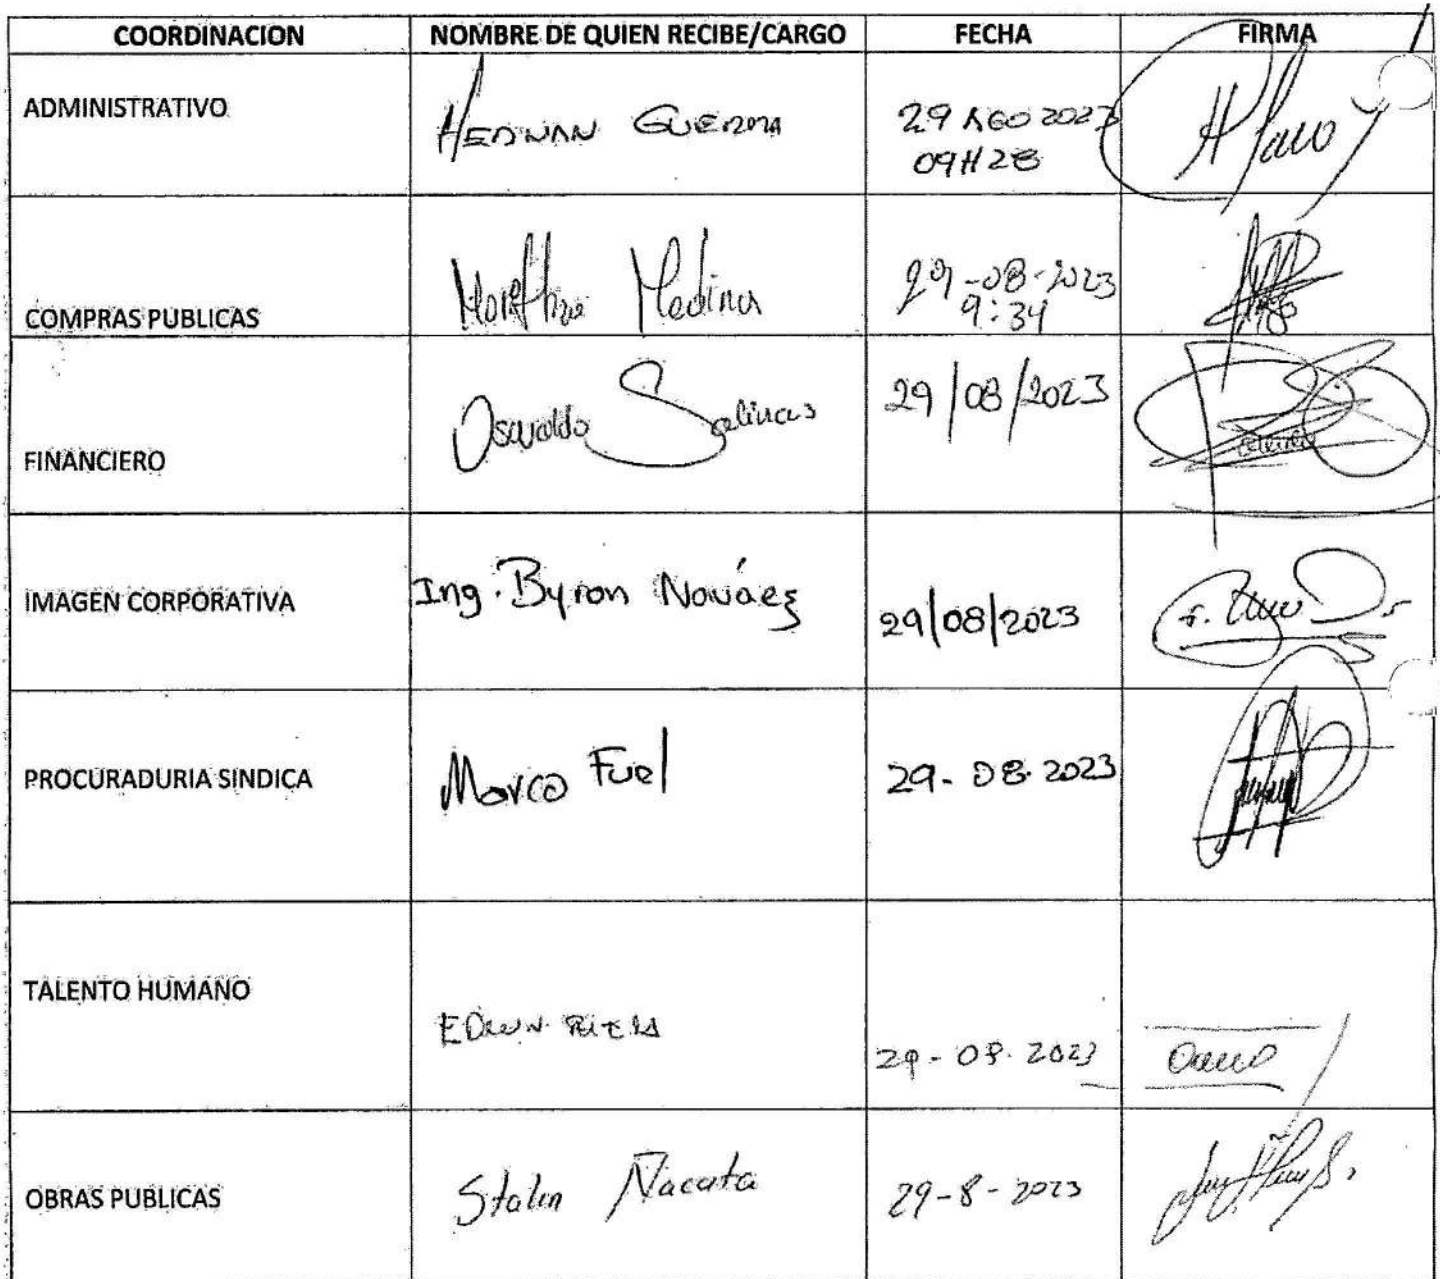 COORDINACION NOMBRE DE QUIEN RECIBE/CARGO FECHA FIRMA
ADMINISTRATIVO HERNAN GUERRA 29 AGO 2023
09H28
COMPRAS PUBLICAS Medina 29-08-2023
9:34
FINANCIERO Oswaldo Salinas 29/08/2023
IMAGEN CORPORATIVA Ing. Byron Nováez 29/08/2023
PROCURADURIA SINDICA Marco Fuel 29-08-2023
TALENTO HUMANO EDWIN 29-08-2023
OBRAS PUBLICAS Stalin Ñacata 29-8-2023